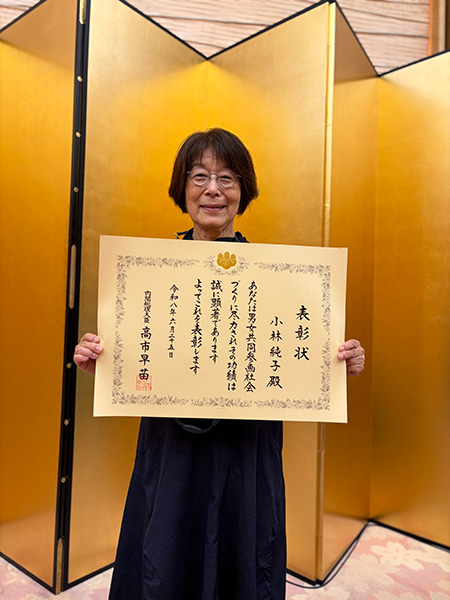 表彰状
小林純子殿
あなたは男女共同参画社会
づくりに尽力されその功績は
誠に顕著であります
よってこれを表彰します
令和八年六月二十五日
内閣総理大臣 高市早苗